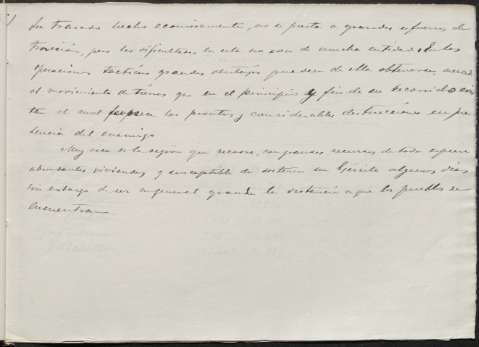 Su trazado hecho economicamente, no se presta a grandes esfuerzos de
tracción, pero las dificultades en este no son de mucha entidad. En las
operaciones tacticas grandes ventajas pueden de ella obtenerse, merced
al movimiento de trenes que en el principio y fin de su recorrido
el cual los puentes y considerables destrucciones en pre
sencia del enemigo
Muy rica es la region que recorre, con grandes recursos de todo genero
abundantes viviendas, y susceptible de sostener un Ejército algunos dias
sin embargo de ser en general grande la distancia a que los pueblos se
encuentran